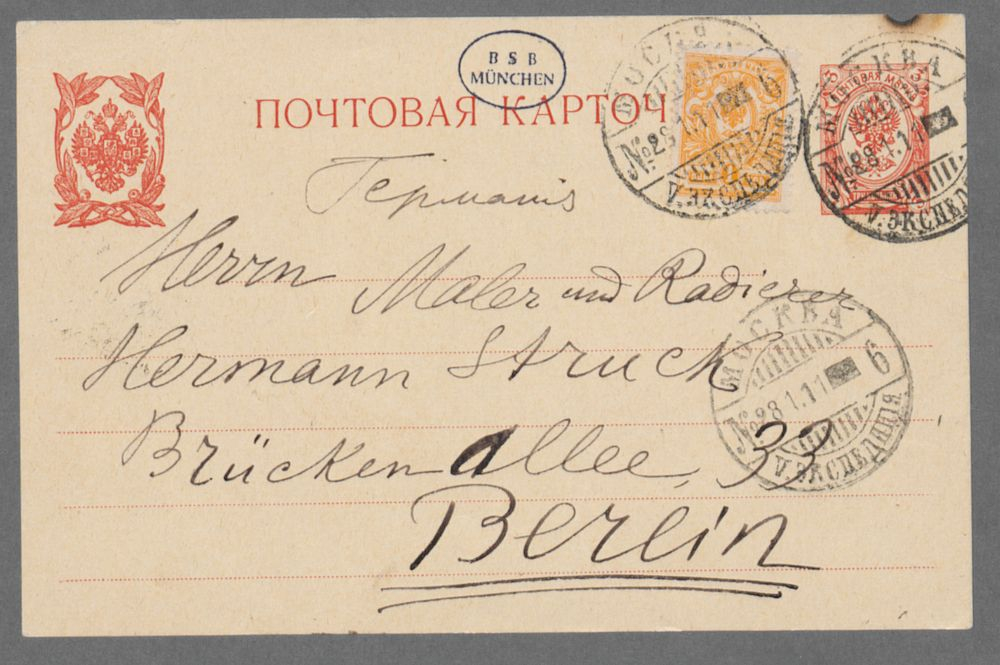 B S B
MÜNCHEN
ПОЧТОВАЯ КАРТОЧ
МОСКВА
6
28 1.11
V. ЭКСПЕДИЦІЯ
Германія
Herrn Maler und Radierer
Hermann Struck
Brückenallee, 33
Berlin
МОСКВА
6
№ 28 1.11
V. ЭКСПЕДИЦІЯ